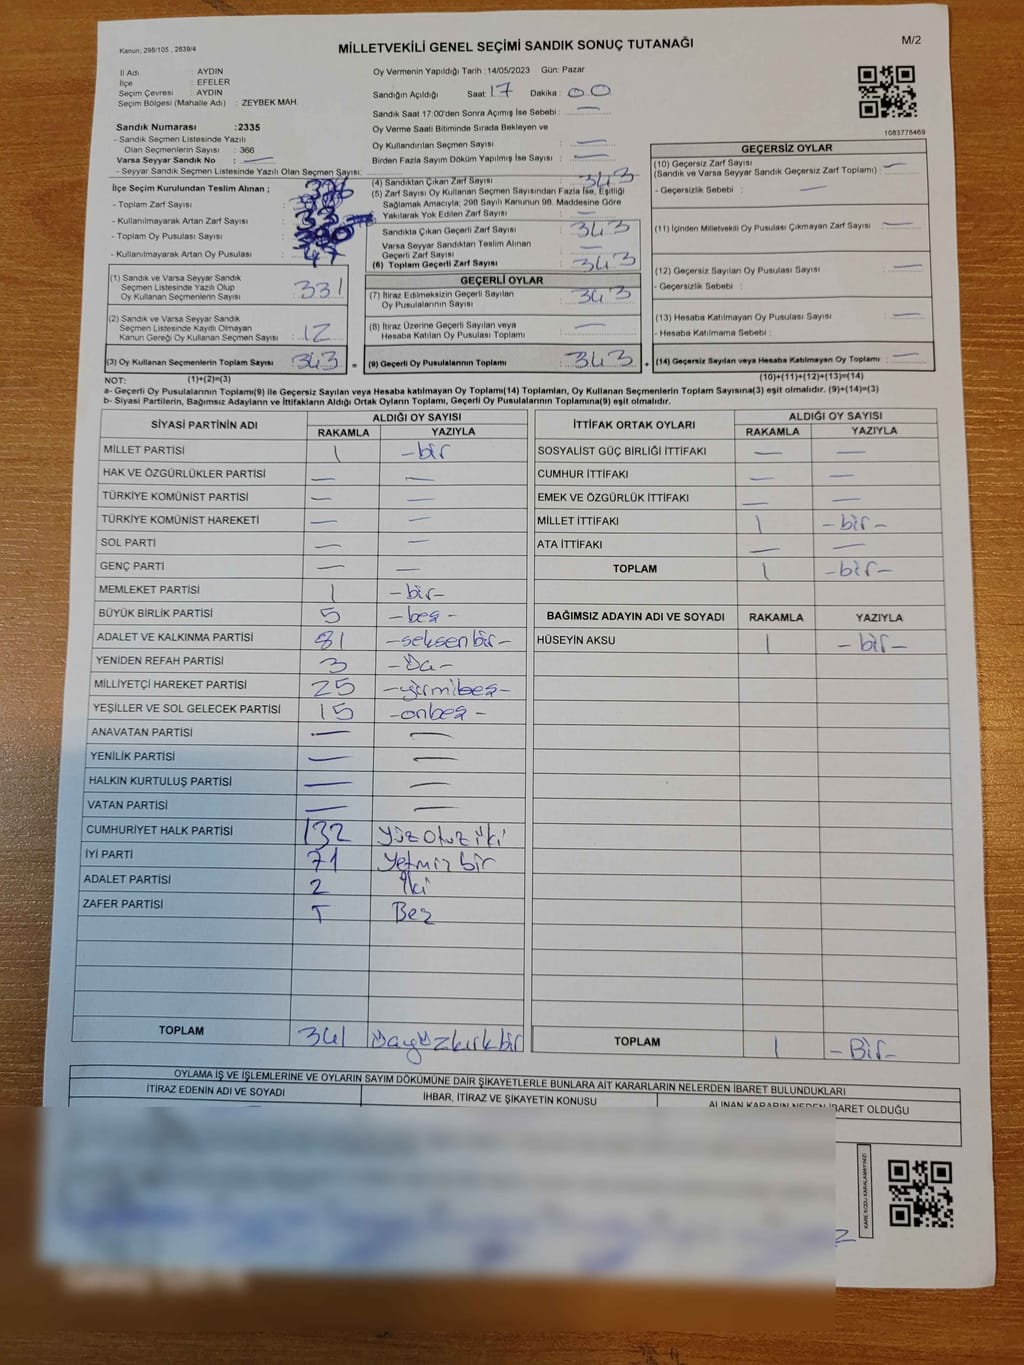 Kanun, 298/105 , 2839/4
MİLLETVEKİLİ GENEL SEÇİMİ SANDIK SONUÇ TUTANAĞI
M/2
İl Adı : AYDIN
İlçe : EFELER
Seçim Çevresi : AYDIN
Seçim Bölgesi (Mahalle Adı) : ZEYBEK MAH.
Oy Vermenin Yapıldığı Tarih :14/05/2023 Gün: Pazar
Sandığın Açıldığı Saat: 17 Dakika : 00
Sandık Saat 17:00'den Sonra Açımış İse Sebebi : —
Oy Verme Saati Bitiminde Sırada Bekleyen ve
Oy Kullandırılan Seçmen Sayısı : —
Birden Fazla Sayım Döküm Yapılmış İse Sayısı : —
1083776469
Sandık Numarası :2335
- Sandık Seçmen Listesinde Yazılı
Olan Seçmenlerin Sayısı : 366
Varsa Seyyar Sandık No : —
- Seyyar Sandık Seçmen Listesinde Yazılı Olan Seçmen Sayısı:
İlçe Seçim Kurulundan Teslim Alınan ; 376
- Toplam Zarf Sayısı :
- Kullanılmayarak Artan Zarf Sayısı : 33
- Toplam Oy Pusulası Sayısı :
- Kullanılmayarak Artan Oy Pusulası : 47
(1) Sandık ve Varsa Seyyar Sandık
Seçmen Listesinde Yazılı Olup
Oy Kullanan Seçmenlerin Sayısı : 331
(2) Sandık ve Varsa Seyyar Sandık
Seçmen Listesinde Kayıtlı Olmayan
Kanun Gereği Oy Kullanan Seçmen Sayısı : 12
(3) Oy Kullanan Seçmenlerin Toplam Sayısı : 343
(4) Sandıktan Çıkan Zarf Sayısı : 343
(5) Zarf Sayısı Oy Kullanan Seçmen Sayısından Fazla İse, Eşitliği
Sağlamak Amacıyla, 298 Sayılı Kanunun 98. Maddesine Göre
Yakılarak Yok Edilen Zarf Sayısı : —
Sandıkta Çıkan Geçerli Zarf Sayısı : 343
Varsa Seyyar Sandıktan Teslim Alınan
Geçerli Zarf Sayısı : —
(6) Toplam Geçerli Zarf Sayısı : 343
GEÇERLİ OYLAR
(7) İtiraz Edilmeksizin Geçerli Sayılan
Oy Pusulalarının Sayısı : 343
(8) İtiraz Üzerine Geçerli Sayılan veya
Hesaba Katılan Oy Pusulası Toplamı : —
= (9) Geçerli Oy Pusulalarının Toplamı : 343
GEÇERSİZ OYLAR
(10) Geçersiz Zarf Sayısı
(Sandık ve Varsa Seyyar Sandık Geçersiz Zarf Toplamı) : —
- Geçersizlik Sebebi : —
(11) İçinden Milletvekili Oy Pusulası Çıkmayan Zarf Sayısı : —
(12) Geçersiz Sayılan Oy Pusulası Sayısı : —
- Geçersizlik Sebebi :
(13) Hesaba Katılmayan Oy Pusulası Sayısı : —
- Hesaba Katılmama Sebebi :
+ (14) Geçersiz Sayılan veya Hesaba Katılmayan Oy Toplamı : —
NOT: (1)+(2)=(3) (10)+(11)+(12)+(13)=(14)
a- Geçerli Oy Pusulalarının Toplamı(9) ile Geçersiz Sayılan veya Hesaba katılmayan Oy Toplamı(14) Toplamları, Oy Kullanan Seçmenlerin Toplam Sayısına(3) eşit olmalıdır. (9)+(14)=(3)
b- Siyasi Partilerin, Bağımsız Adayların ve İttifakların Aldığı Ortak Oyların Toplamı, Geçerli Oy Pusulalarının Toplamına(9) eşit olmalıdır.
SİYASİ PARTİNİN ADI ALDIĞI OY SAYISI
RAKAMLA YAZIYLA
MİLLET PARTİSİ 1 -bir
HAK VE ÖZGÜRLÜKLER PARTİSİ — —
TÜRKİYE KOMÜNİST PARTİSİ — —
TÜRKİYE KOMÜNİST HAREKETİ — —
SOL PARTİ — —
GENÇ PARTİ — —
MEMLEKET PARTİSİ 1 -bir-
BÜYÜK BİRLİK PARTİSİ 5 -beş-
ADALET VE KALKINMA PARTİSİ 81 -seksenbir-
YENİDEN REFAH PARTİSİ 3 -Üç-
MİLLİYETÇİ HAREKET PARTİSİ 25 -yirmibeş-
YEŞİLLER VE SOL GELECEK PARTİSİ 15 -onbeş-
ANAVATAN PARTİSİ — —
YENİLİK PARTİSİ — —
HALKIN KURTULUŞ PARTİSİ — —
VATAN PARTİSİ — —
CUMHURİYET HALK PARTİSİ 132 Yüz otuz iki
İYİ PARTİ 71 Yetmiş bir
ADALET PARTİSİ 2 İki
ZAFER PARTİSİ 5 Beş
TOPLAM 341 Üçyüzkırkbir
İTTİFAK ORTAK OYLARI ALDIĞI OY SAYISI
RAKAMLA YAZIYLA
SOSYALİST GÜÇ BİRLİĞİ İTTİFAKI — —
CUMHUR İTTİFAKI — —
EMEK VE ÖZGÜRLÜK İTTİFAKI — —
MİLLET İTTİFAKI 1 -bir-
ATA İTTİFAKI — —
TOPLAM 1 -bir-
BAĞIMSIZ ADAYIN ADI VE SOYADI RAKAMLA YAZIYLA
HÜSEYİN AKSU 1 -bir-
TOPLAM 1 -Bir-
OYLAMA İŞ VE İŞLEMLERİNE VE OYLARIN SAYIM DÖKÜMÜNE DAİR ŞİKAYETLERLE BUNLARA AİT KARARLARIN NELERDEN İBARET BULUNDUKLARI
İTİRAZ EDENİN ADI VE SOYADI
İHBAR, İTİRAZ VE ŞİKAYETİN KONUSU
ALINAN KARARIN NEDEN İBARET OLDUĞU
KARE KODU KARALAMAYINIZ!